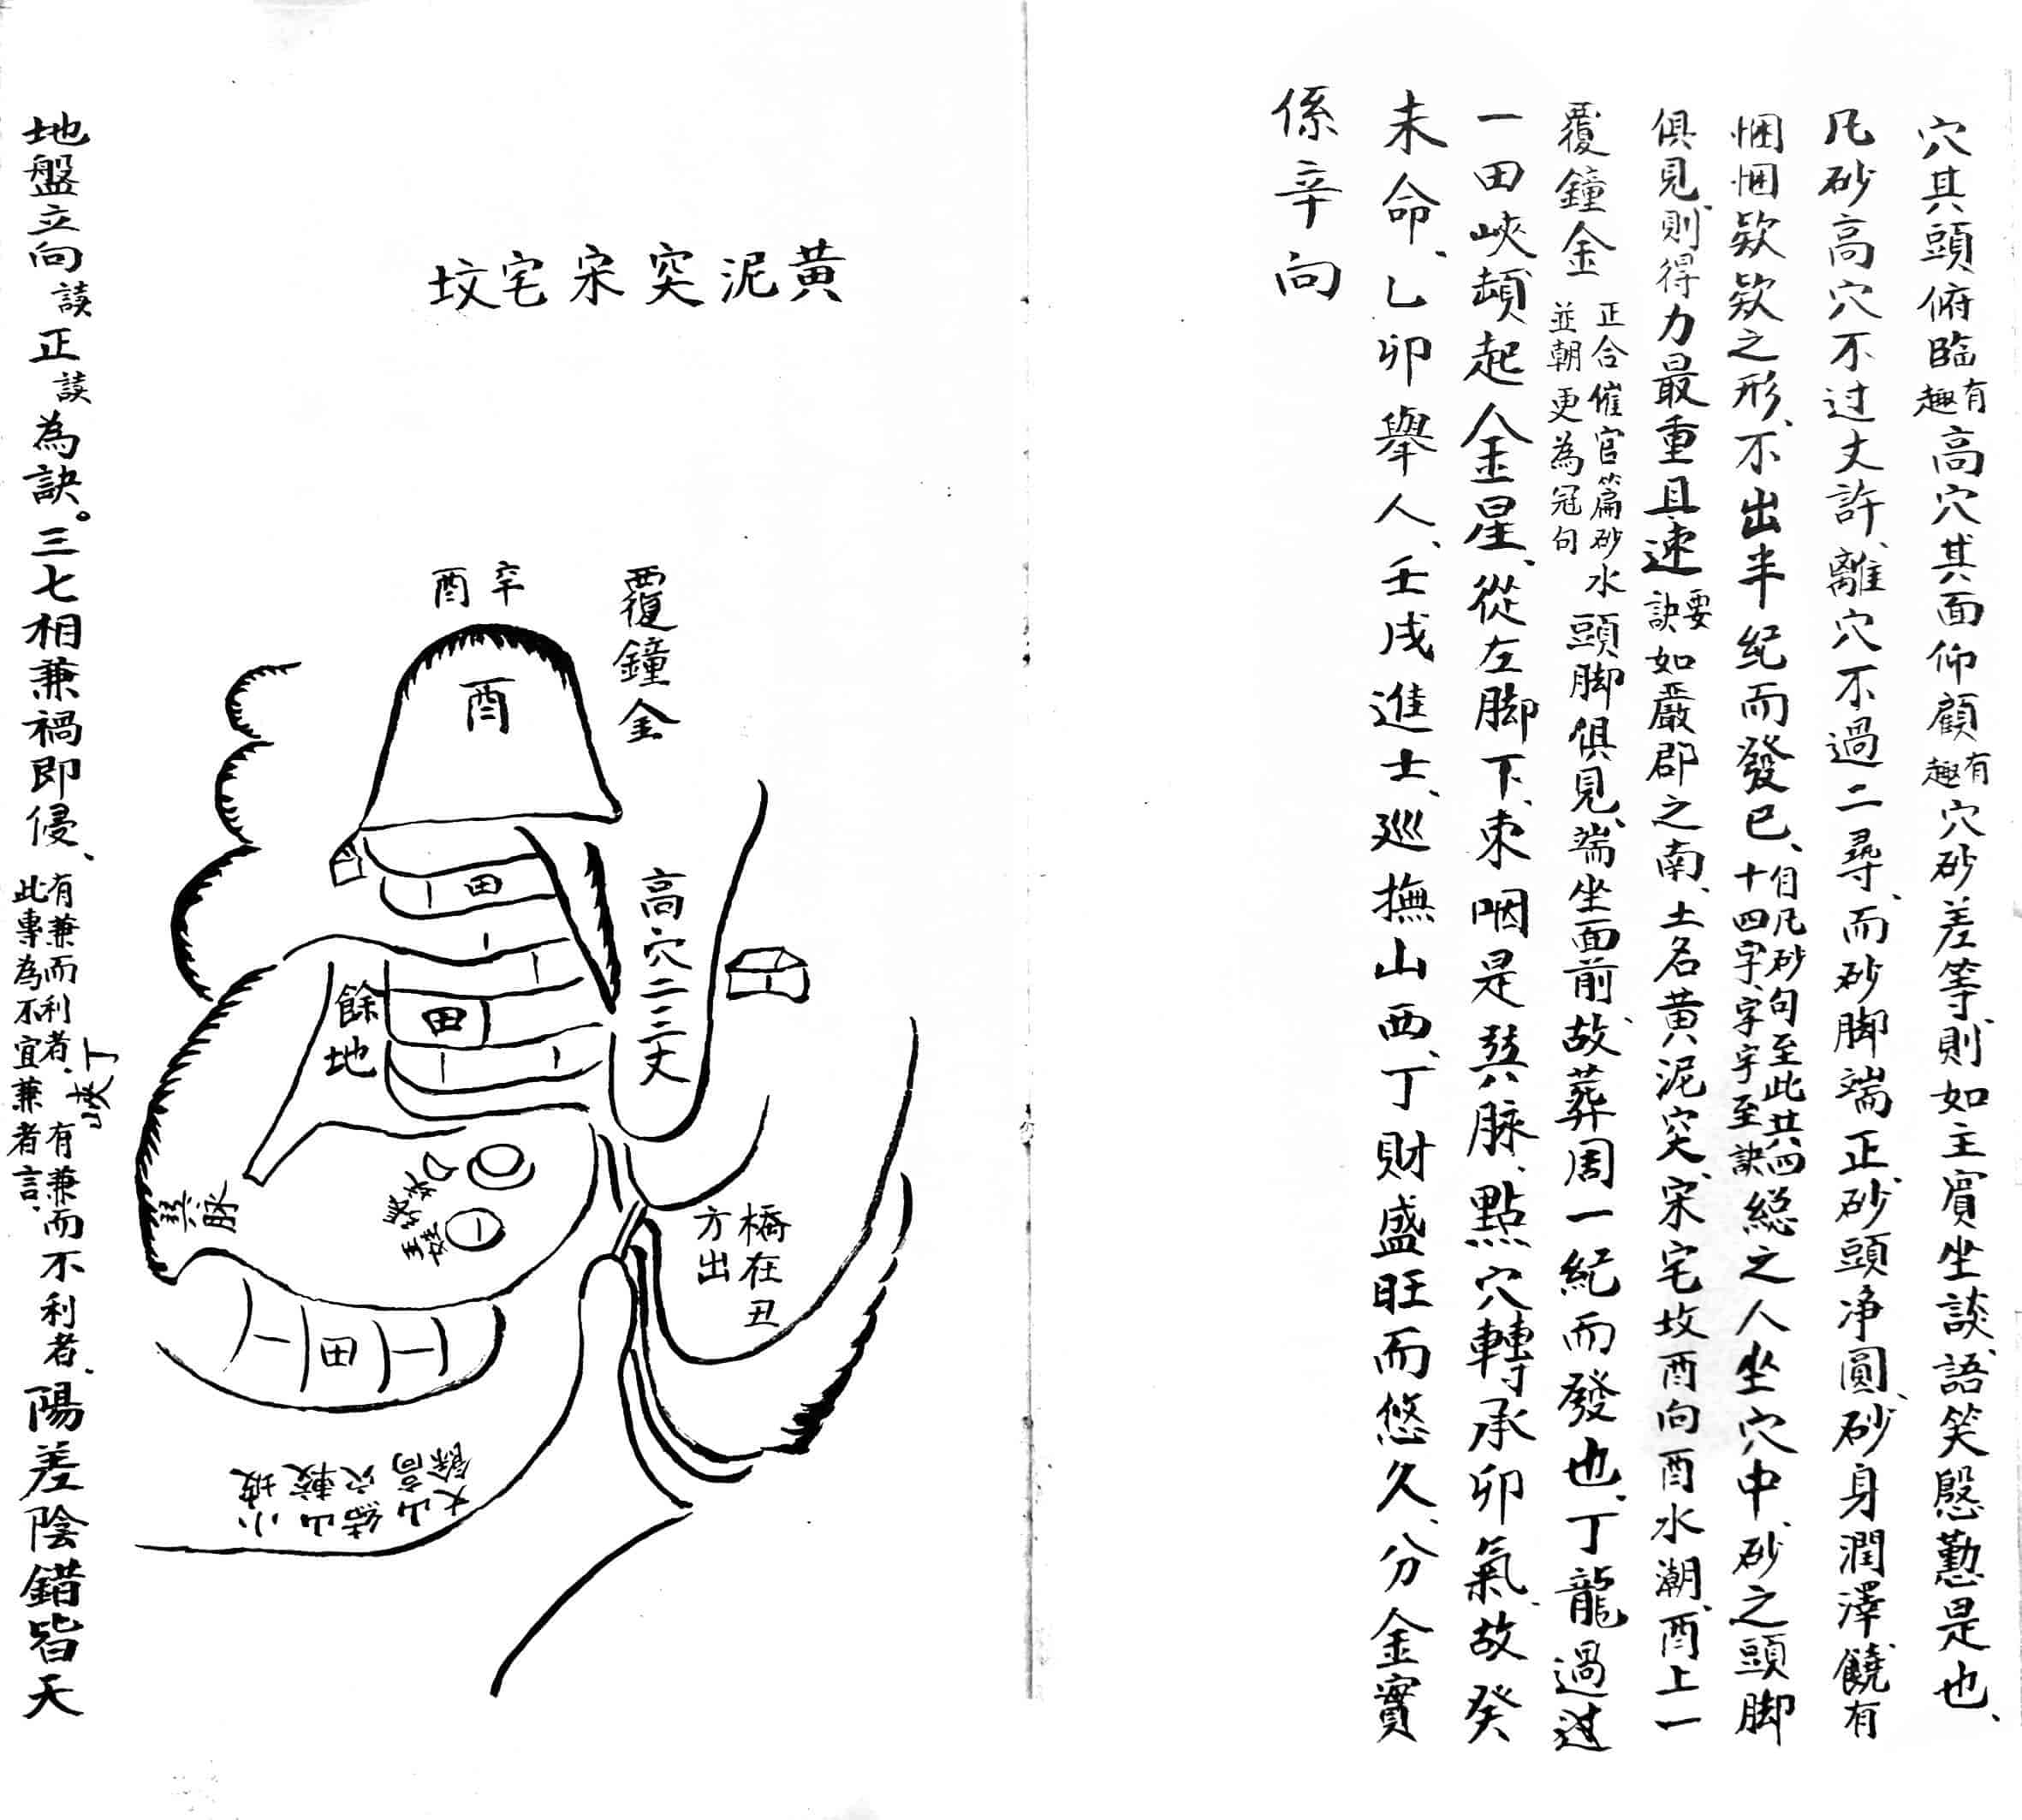 穴其頭俯臨有趣高穴其面仰顧有趣穴砂差等則如主賓坐談語笑慇懃是也、
凡砂高穴不过丈許、離穴不過二尋、而砂脚端正、砂頭净圓、砂身潤澤、饒有
悃悃欵欵之形、不出半紀而發已、自凡砂句至此共四十四字、字字至訣總之人坐穴中、砂之頭脚
俱見、則得力最重且速要訣如嚴郡之南、土名黄泥突、宋宅坟酉向酉水潮、酉上一
覆鐘金正合催官篇砂水並朝更為冠句頭脚俱見、端坐面前、故葬周一紀而發也、丁龍過过
一田峽頓起金星、從左脚下、束咽是巽脉、點穴轉承卯氣、故癸
未命、乙卯舉人、壬戌進士、廵撫山西、丁財盛旺而悠久、分金實
係辛向
黄泥突宋宅坟
辛
酉
覆鐘金
酉
田
高穴二三丈
餘地
田
巽脉
橋在丑
方出
田
大山結山小
餘高穴較坡
地盤立向讀正讀為訣。三七相兼禍即侵、有兼而利者、有兼而不利者、此專為不宜兼者言、陽差陰錯皆天
丁峽